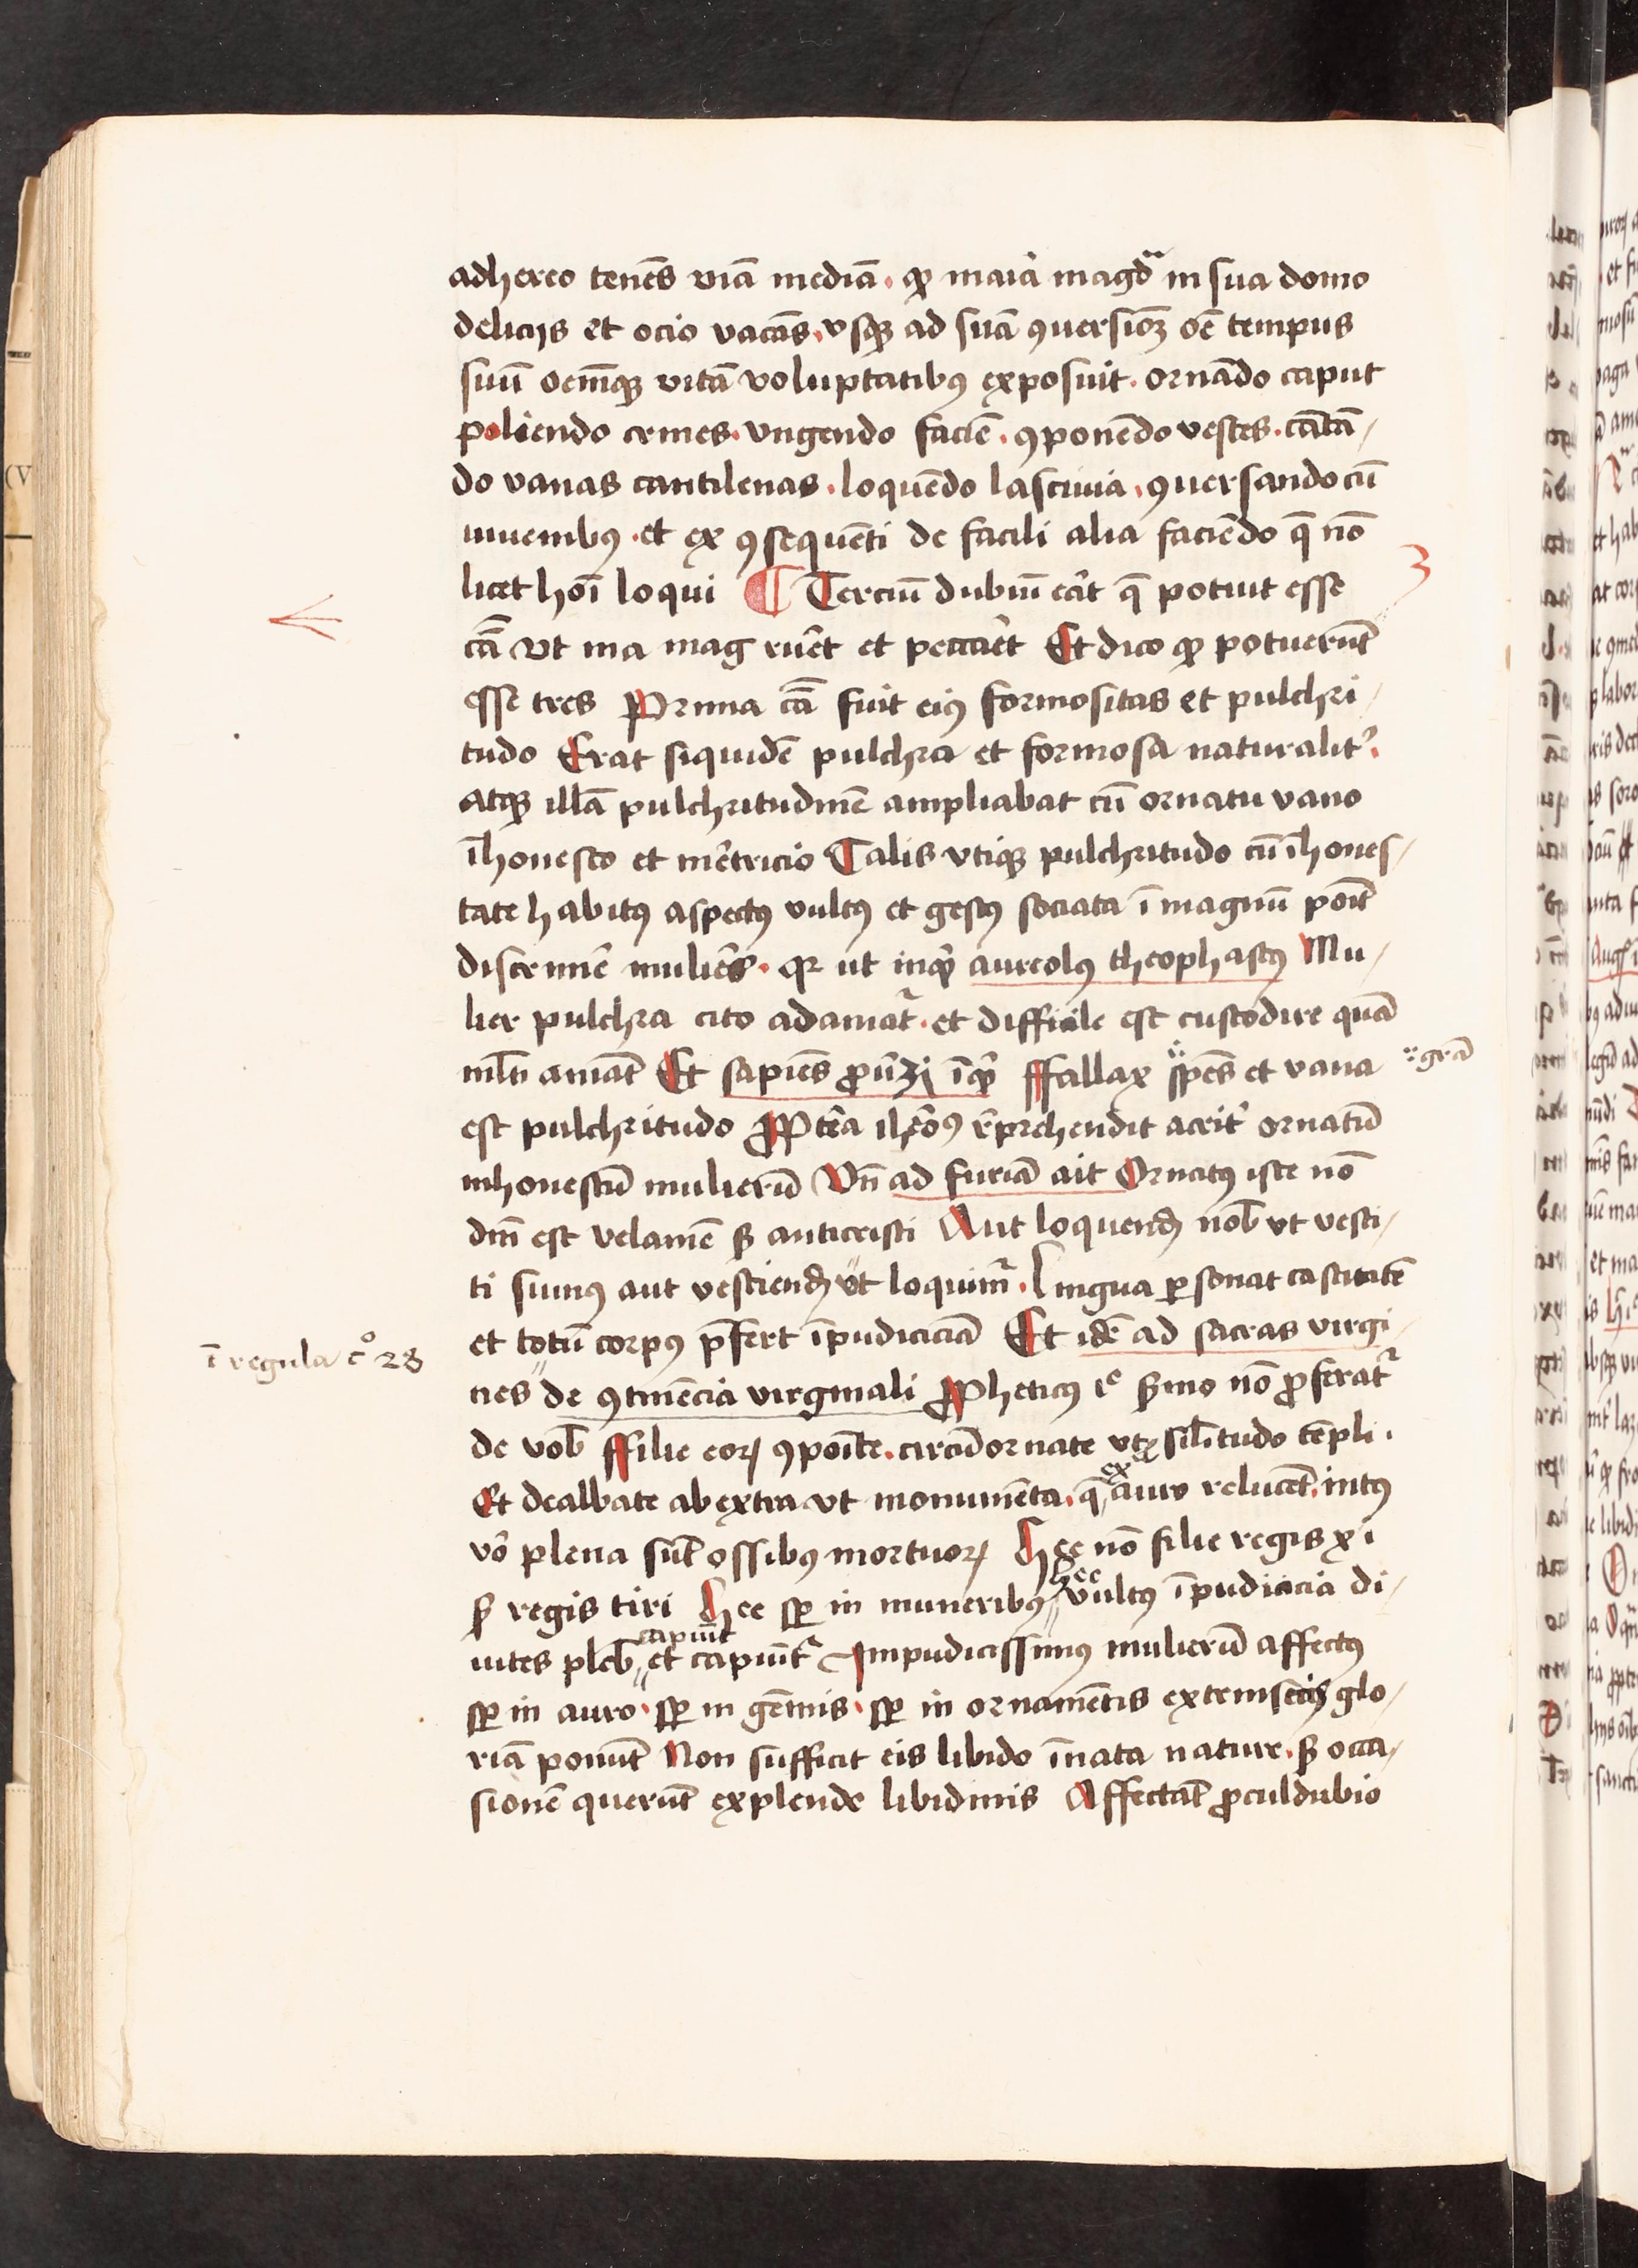 adhereo tenēs viā mediā. ꝙ maīa magdᵃ in sua domo
delicijs et ocio vacās. vsqꝫ ad suā ꝯuersioꝫ oē tempus
suū oem̄qꝫ vitā voluptatibꝰ exposuit. ornādo caput
poliendo crines. vngendo faciē. ꝯponēdo vestes. cātā/
do vanas cantilenas. loquēdo lasciuia. ꝯuersando cū
iuuenibꝰ. et ex ꝯsequēti de facili alia faciēdo q̄ nō
licet hoī loqui ¶ Terciū dubiū erit q̄ potuit esse 3
cā vt ma mag ruēt et peccaēt Et dico ꝙ potuerūt
esse tres Prima cā fuit eiꝰ formositas et pulchri/
tudo Erat siquidē pulchra et formosa naturalit̓.
atqꝫ illā pulchritudinē ampliabat cū ornatu vano
īhonesto et mēretricio Talis vtiqꝫ pulchritudo cū īhones/
tate habitꝰ aspectꝰ vultꝰ et gestꝰ sociata ī magnū ponit
discrimē muliērē. qꝛ ut inqͥt aureolꝰ theophastꝰ Mu/
lier pulchra cito adamat᷑. et difficile est custodire quā
ml̄ti amāt Et sapiēs ꝓū 31 īqͥt ffallax sp̄es et vana
grā
est pulchritudo ꝓpterea ih̄eroꝰ rep̄rehendit acrit̓ ornatū
inhonestū mulierū Vn̄ ad furiā ait Ornatꝰ iste nō
dn̄i est velamē sꝫ anticristi Aut loquendū nob̄ vt vesti/
ti sumꝰ aut vestiendū vt loquim᷑. Lingua ꝑsonat castitatē
et totū corpꝰ p̄fert īpudiciciā Et idē ad sacras virgi/
ī regula cº 28
nes de ꝯtinēcia virginali ꝓpheticꝰ ie sermo nō ꝓferat᷑
de vob̄ ffilie eoꝝ ꝯpoīte. circūdornate vt silitudo tēpli.
Et dealbate ab extra vt monumēta. q̄ ex auro relucēt. intꝰ
vō plena sūt ossibꝰ mortuoꝝ hee nō filie regis xi
sꝫ regis tiri hee sꝑ in muneribꝰ hee vultꝰ īpudicicia di/
uites pleb̄ capiūt et capiūt᷑ Impudicissimꝰ mulierū affectꝰ
sꝑ in auro. sꝑ in gēmis. sꝑ in ornamētis extrinsecis glo/
riā ponūt Non sufficit eis libido īnata nature. sꝫ occa/
sionē querūt explende libidinis Affectāt ꝓculdubio